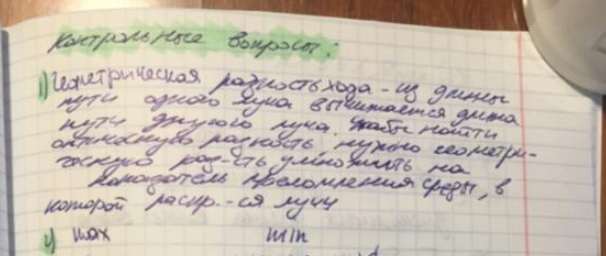 Контрольные вопросы:
1) Геометрическая разность хода - из длины
пути одного луча вычитается длина
пути другого луча. Чтобы найти
оптическую разность, нужно геометри-
ческую раз-сть умножить на
показатель преломления среды, в
которой распр.-ся лучи
2) max min